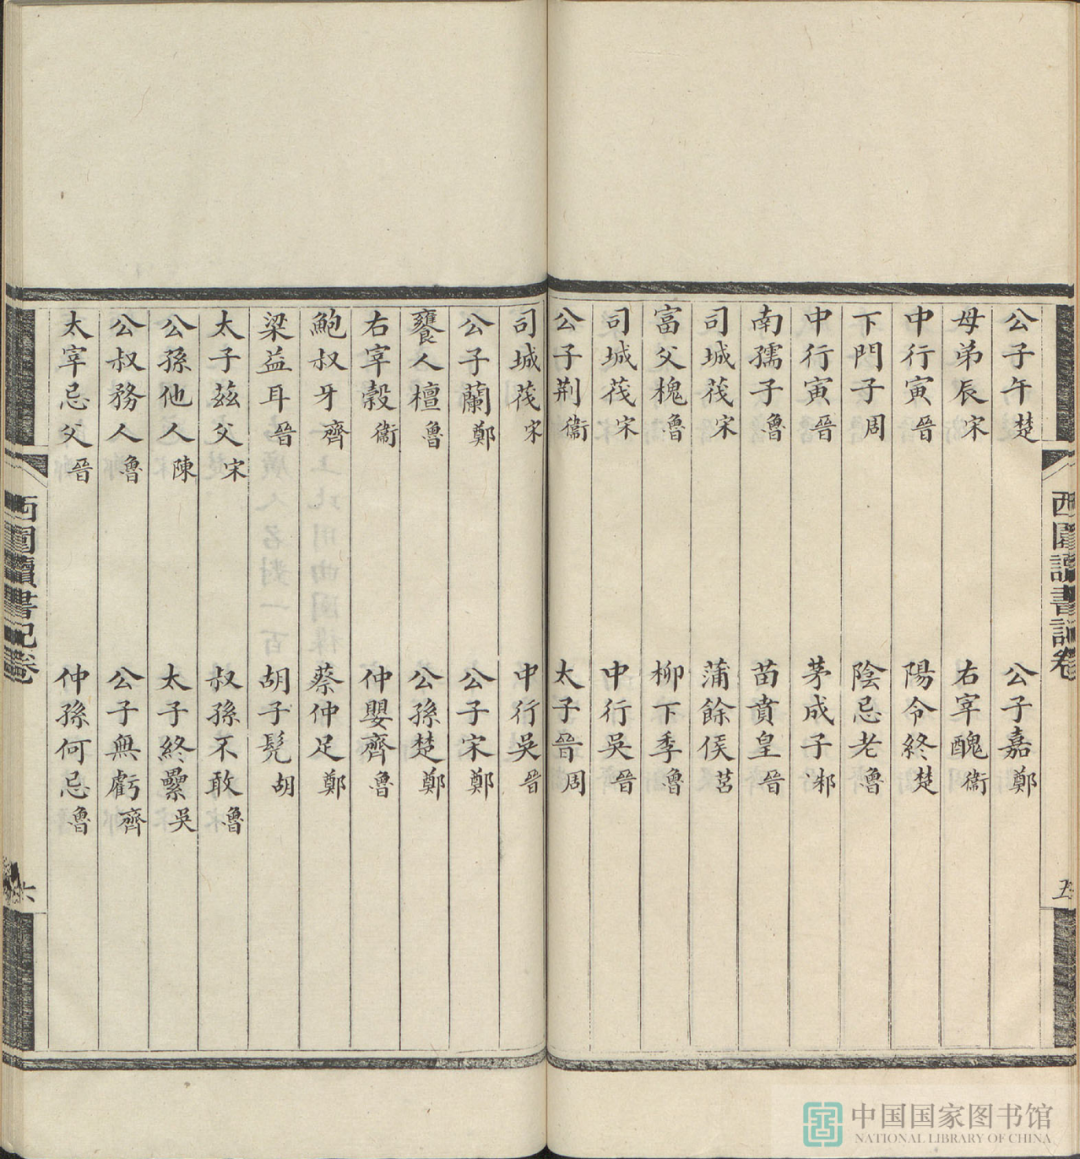 西園讀書記卷
五
公子午楚 公子嘉鄭
母弟辰宋 右宰醜衞
中行寅晉 陽令終楚
下門子周 陰忌老魯
中行寅晉 茅成子邾
南孺子魯 苗賁皇晉
司城茷宋 蒲餘侯莒
富父槐魯 柳下季魯
司城茷宋 中行吳晉
公子荆衞 太子晉周
司城茷宋 中行吳晉
公子蘭鄭 公子宋鄭
饔人檀魯 公孫楚鄭
右宰穀衞 仲嬰齊魯
鮑叔牙齊 蔡仲足鄭
梁益耳晉 胡子髡胡
太子茲父宋 叔孫不敢魯
公孫他人陳 太子終纍吳
公叔務人魯 公子無虧齊
太宰忌父晉 仲孫何忌魯
西園讀書記卷
六
中国国家图书馆
NATIONAL LIBRARY OF CHINA